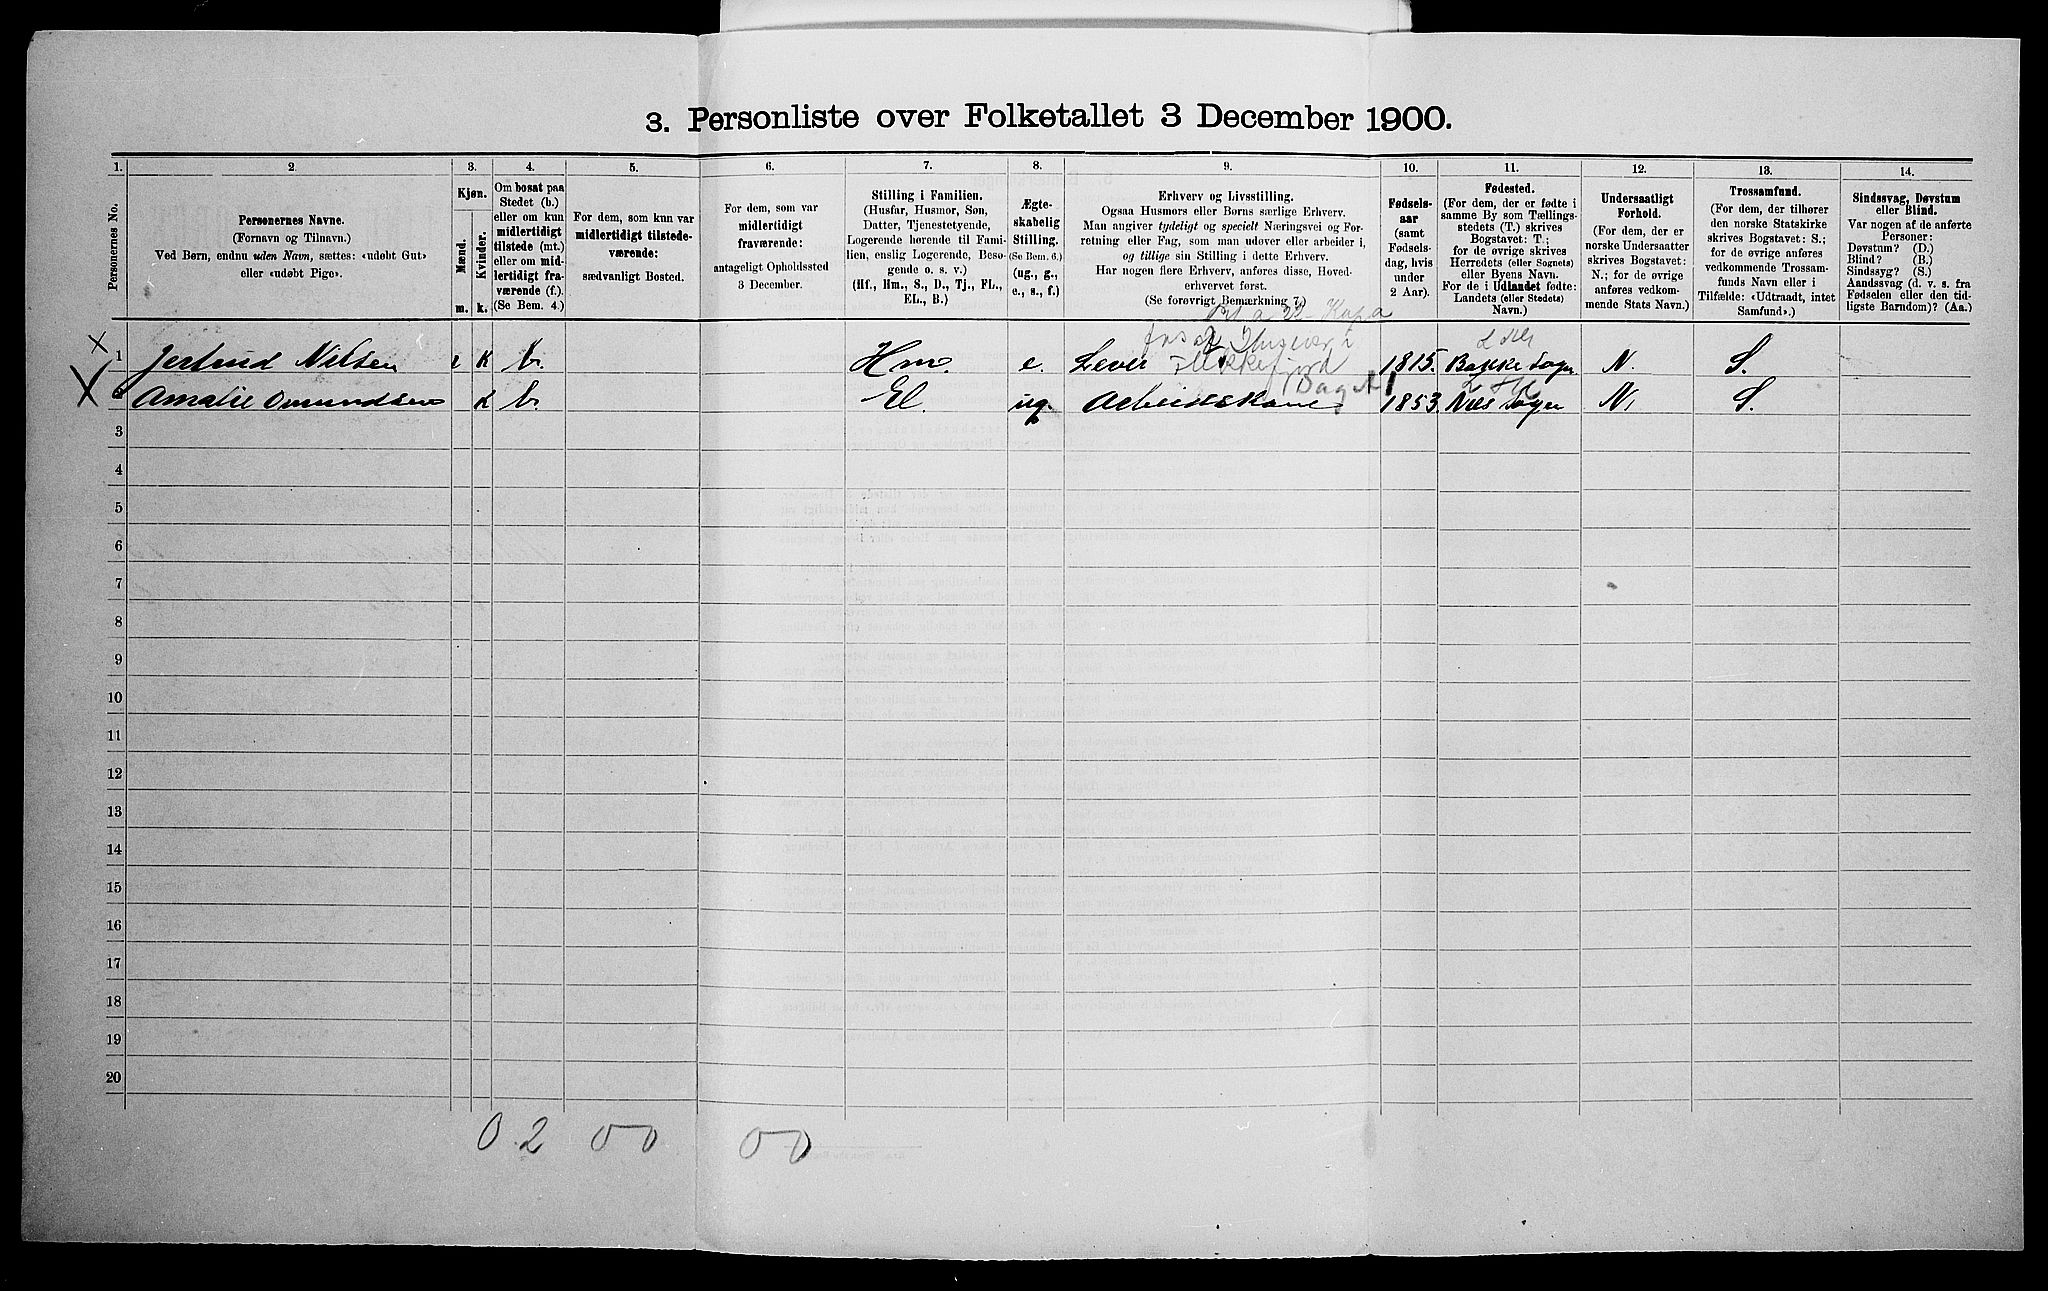 3. Personliste over Folketallet 3 December 1900.
1. 2. 3. 4. 5. 6. 7. 8. 9. 10. 11. 12. 13. 14.
Personernes No.
Personernes Navne.
(Fornavn og Tilnavn.)
Ved Børn, endnu uden Navn, sættes: «udøbt Gut»
eller «udøbt Pige».
Kjøn.
Mænd.
Kvinder.
m. k.
Om bosat paa
Stedet (b.)
eller om kun
midlertidigt
tilstede (mt.)
eller om mid-
lertidigt fra-
værende (f.).
(Se Bem. 4.)
For dem, som kun var
midlertidigt tilstede-
værende:
sædvanligt Bosted.
For dem, som var
midlertidigt
fraværende:
antageligt Opholdssted
3 December.
Stilling i Familien.
(Husfar, Husmor, Søn,
Datter, Tjenestetyende,
Logerende hørende til Fami-
lien, enslig Logerende, Besø-
gende o. s. v.)
(Hf., Hm., S., D., Tj., FL.,
EL., B.)
Ægte-
skabelig
Stilling.
(Se Bem. 6.)
(ug., g.,
e., s., f.)
Erhverv og Livsstilling.
Ogsaa Husmors eller Børns særlige Erhverv.
Man angiver tydeligt og specielt Næringsvei og For-
retning eller Fag, som man udøver eller arbeider i,
og tillige sin Stilling i dette Erhverv.
Har nogen flere Erhverv, anføres disse, Hoved-
erhvervet først.
(Se forøvrigt Bemærkning 7.)
Fødsels-
aar
(samt
Fødsels-
dag, hvis
under
2 Aar).
Fødested.
(For dem, der er fødte i
samme By som Tællings-
stedets (T.) skrives
Bogstavet: T.;
for de øvrige skrives
Herredets (eller Sognets)
eller Byens Navn.
For de i Udlandet fødte:
Landets (eller Stedets)
Navn.)
Undersaatligt
Forhold.
(For dem, der er
norske Undersaatter
skrives Bogstavet:
N.; for de øvrige
anføres vedkom-
mende Stats Navn.)
Trossamfund.
(For dem, der tilhører
den norske Statskirke
skrives Bogstavet: S.;
for de øvrige anføres
vedkommende Trossam-
funds Navn eller i
Tilfælde: «Udtraadt, intet
Samfund».)
Sindssvag, Døvstum
eller Blind.
Var nogen af de anførte
Personer:
Døvstum? (D.)
Blind? (B.)
Sindssyg? (S.)
Aandssvag (d. v. s. fra
Fødselen eller den tid-
ligste Barndom)? (Aa.)
x 1 Jertrud Nilsen k b. Hm. e. Lever Flekkefjord 1815. Bakke Sogn N. S.
X Amalie Omundsen k b. El. ug. Arbeidskone 1853. Nes Sogn N. S.
3
4
5
6
7
8
9
10
11
12
13
14
15
16
17
18
19
20
0. 2 0 0 0 0